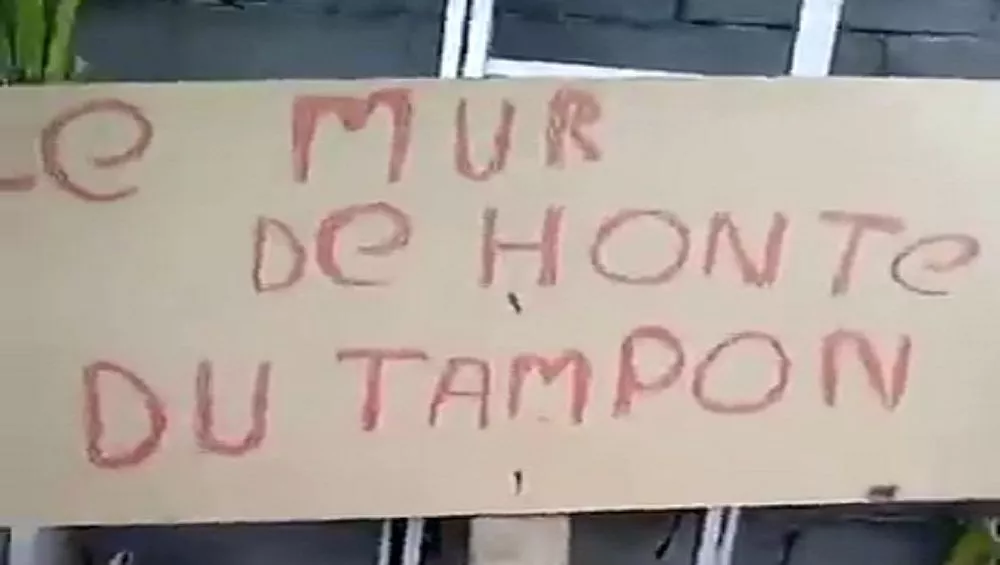 Le MUR
De HONTe
DU TAMPON